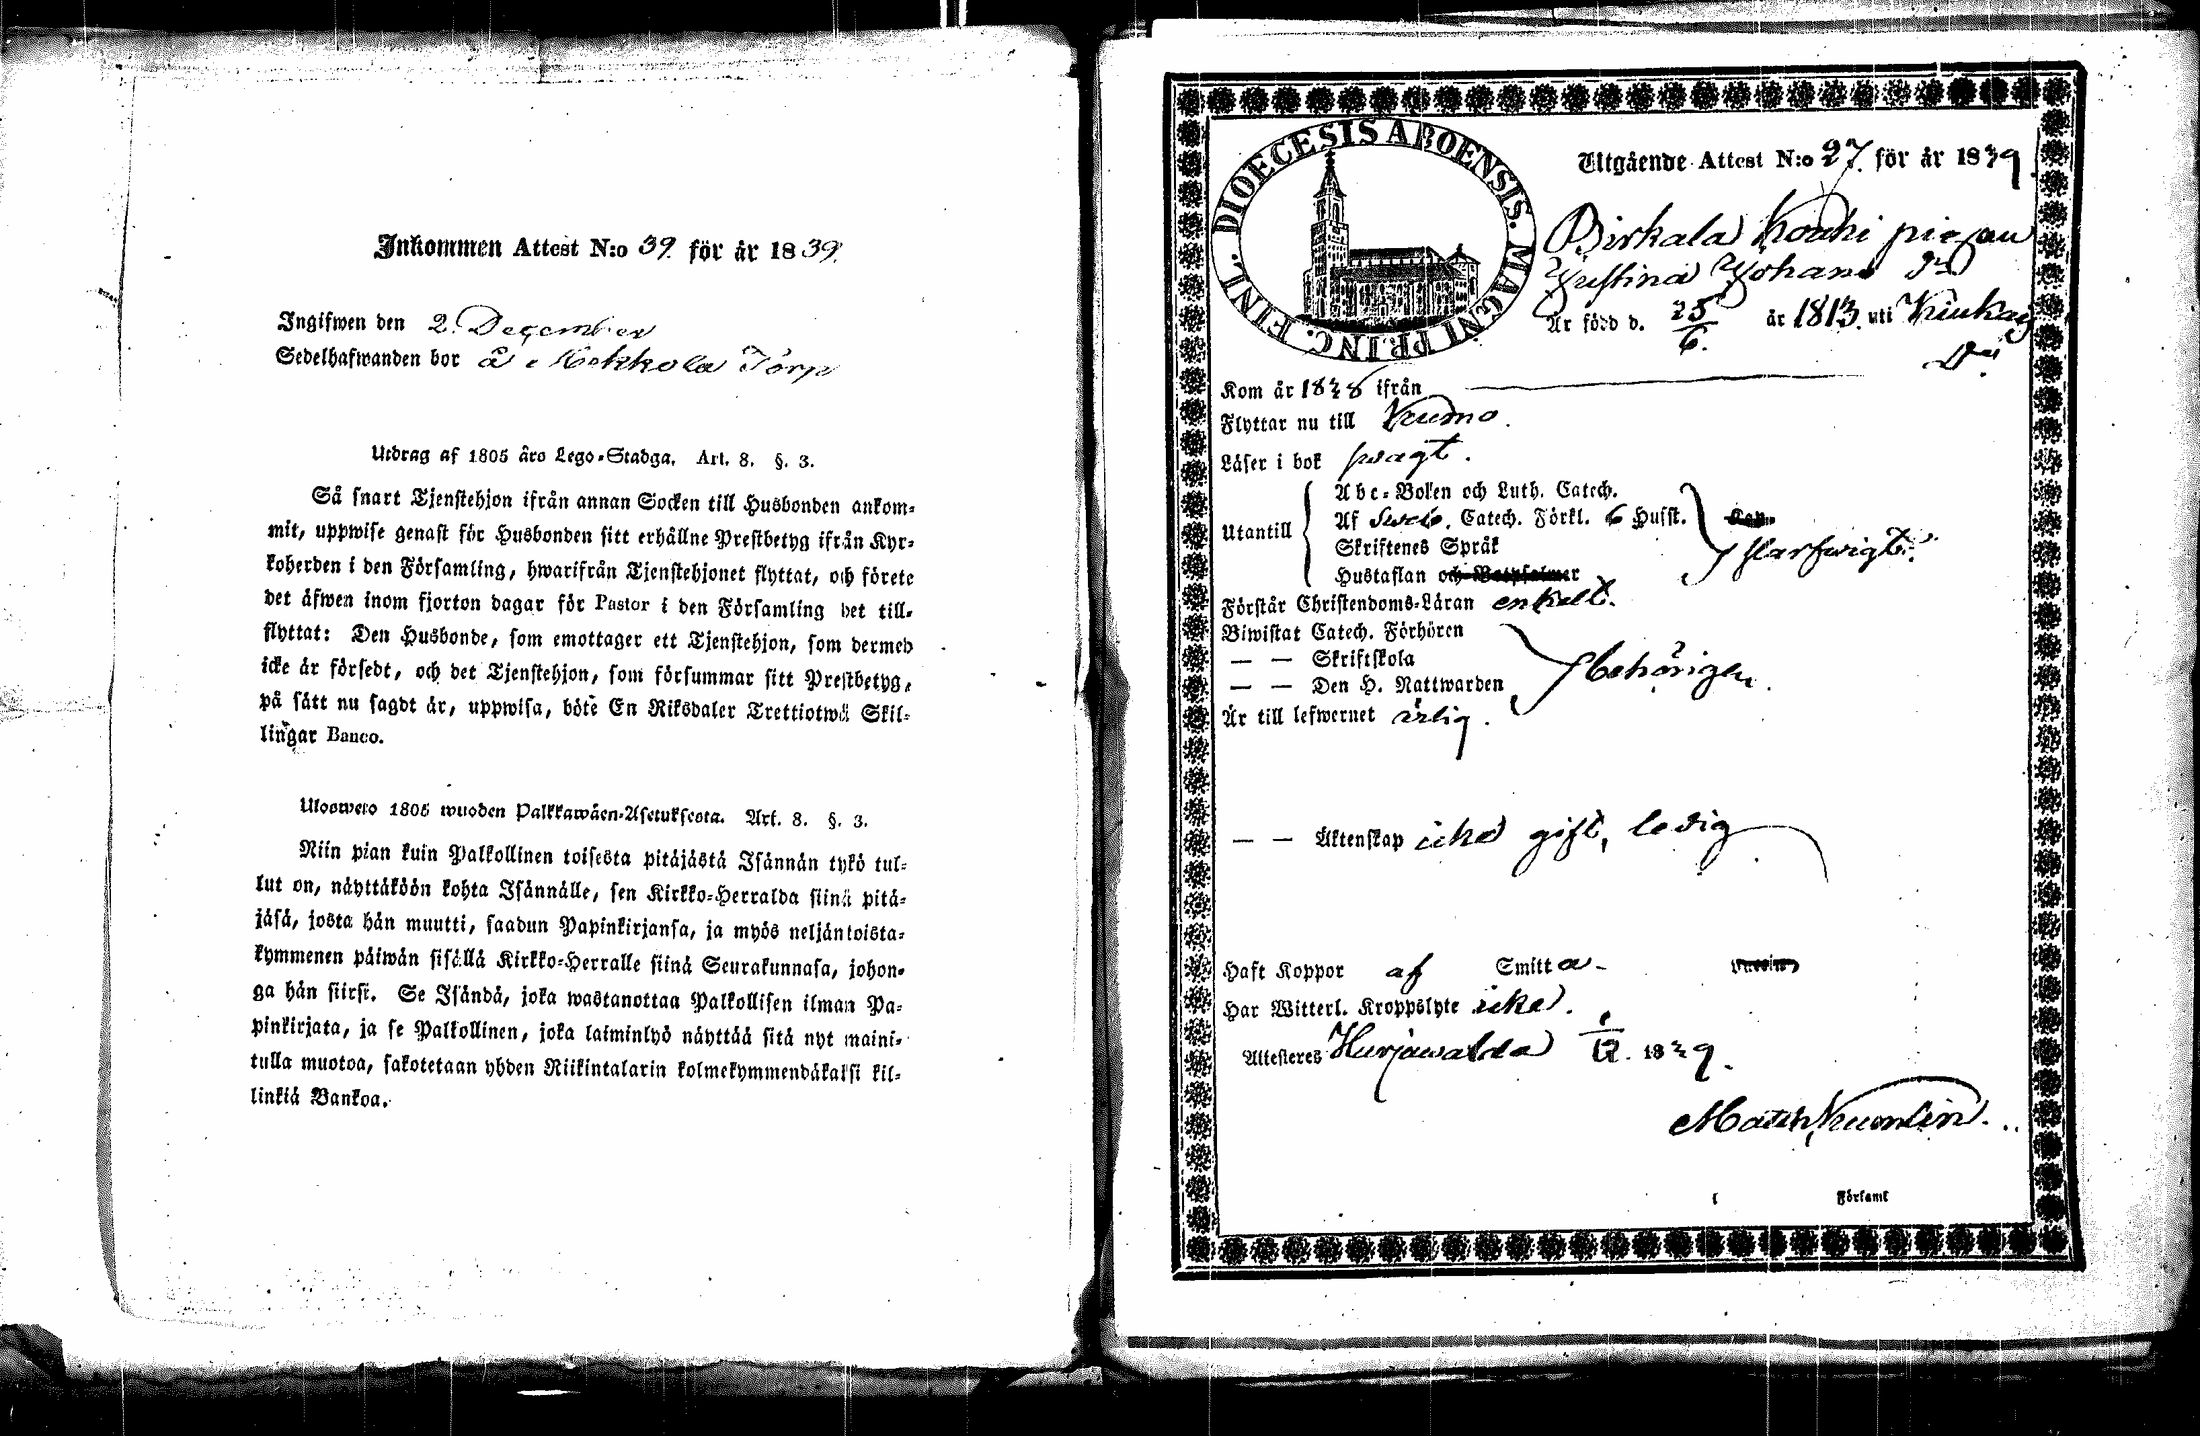 Inkommen Attest N:o 39. för år 1839.
Ingifwen den 2. December
Sedelhafwanden bor å Mekkola Torp
Utdrag af 1805 års Lego-Stadga. Art. 8. §. 3.
Så snart Tjenstehjon ifrån annan Socken till Husbonden ankom-
mit, uppwise genast för Husbonden sitt erhållne Prestbetyg ifrån Kyr-
koherden i den Församling, hwarifrån Tjenstehjonet flyttat, och förete
det äfwen inom fjorton dagar för Pastor i den Församling det till-
flyttat: Den Husbonde, som emottager ett Tjenstehjon, som dermed
icke är försedt, och det Tjenstehjon, som försummar sitt Prestbetyg,
på sätt nu sagdt är, uppwisa, böte En Riksdaler Trettiotwå Skil-
lingar Banco.
Uloswero 1805 wuoden Palkkawäen-Asetuksesta. Art. 8. §. 3.
Niin pian kuin Palkollinen toisesta pitäjästä Isännän tykö tul-
lut on, näyttäköön kohta Isännälle, sen Kirkko-Herralda siinä pitä-
jäsä, josta hän muutti, saadun Papinkirjansa, ja myös neljäntoista-
kymmenen päiwän sisällä Kirkko-Herralle siinä Seurakunnasa, johon-
ga hän siirsi. Se Isändä, joka wastanottaa Palkollisen ilman Pa-
pinkirjata, ja se Palkollinen, joka laiminlyö näyttää sitä nyt maini-
tulla muotoa, sakotetaan yhden Riikintalarin kolmekymmendäkaksi kil-
linkiä Bankoa.
DIOECESIS ABOENSIS. MAGNI PRINC. FINL.
Utgående Attest N:o 27. för år 1839
Birkala Kouhi pigan
Justina Johans dr
Är född d. 25/6. år 1813. uti
Kom år 1838 ifrån
Flyttar nu till Kumo.
Läser i bok swagt.
Utantill
Abc-Boken och Luth. Catech.
Af Sweb. Catech. Förkl. 6 Hufst.
Skriftenes Språk
Hustaflan och Botpsalmer
förswigt.
Förstår Christendoms-Läran enkelt.
Biwistat Catech. Förhören
— — Skriftskola
— — Den H. Nattwarden
behörigen.
Är till lefwernet ärlig.
— — Äktenskap icke gift, ledig
Haft Koppor af Smitta
Har Witterl. Kroppslyte icke.
Attesteres Harjawalda 1/12. 1839.
i Församl